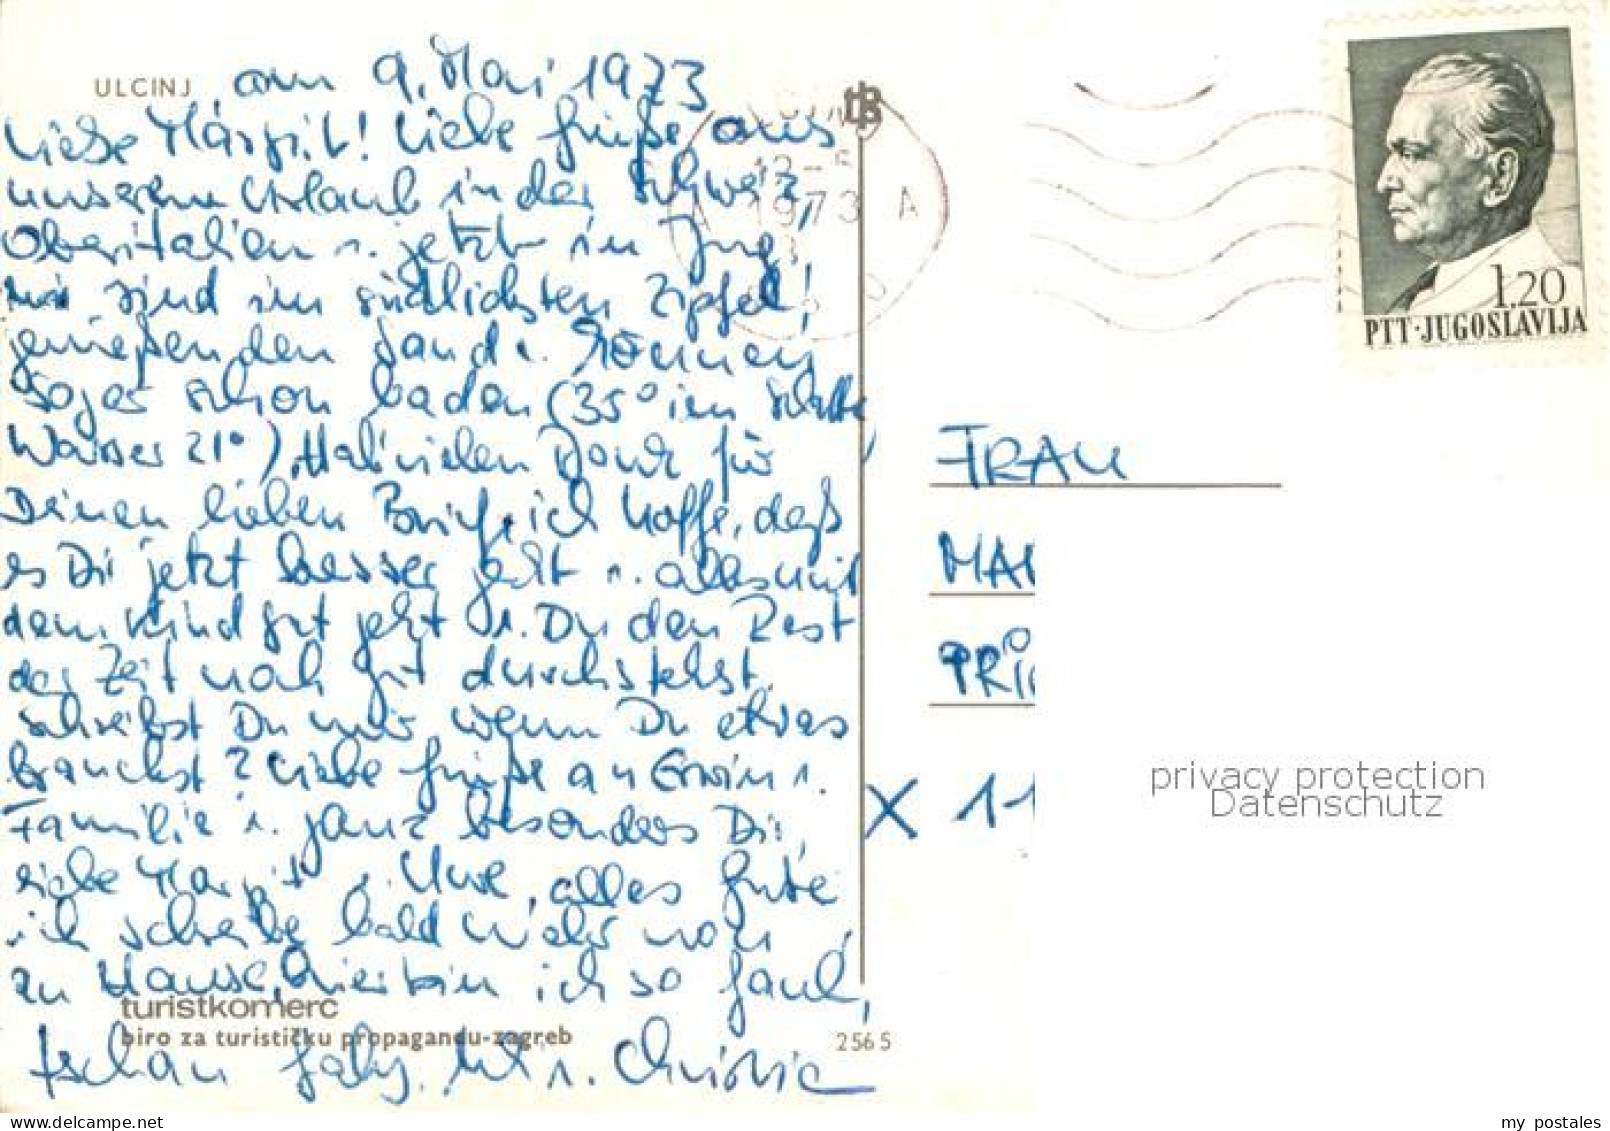 ULCINJ am 9. Mai 1973
Liebe Margit! Liebe Grüße aus
unserem Urlaub in der Schweiz,
Oberitalien u. jetzt in Jug,
wir sind im südlichsten Zipfel,
genießen den Sand u. können
sogar schon baden (35° im Schatten
Wasser 21°). Hab vielen Dank für
Deinen lieben Brief, ich hoffe, daß
es Dir jetzt besser geht u. alles mit
dem Kind gut geht u. Du den Rest
der Zeit noch gut durchstehst.
schreibst Du mir wenn Du etwas
brauchst? Liebe Grüße an Erwin u.
Familie u. ganz besonders Dir,
liebe Margit u. Uwe, alles Gute
ich schreibe bald wieder von
zu Hause, hier bin ich so faul,
tschau u. Christa
turistkomerc
biro za turističku propagandu-zagreb
2565
1973
A
1.20
PTT·JUGOSLAVIJA
FRAU
MAR
PRI
X 1-1
privacy protection
Datenschutz
my postales